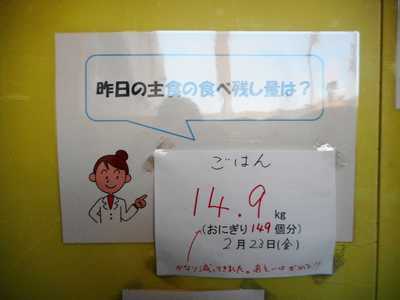 昨日の主食の食べ残し量は？
ごはん
14.9 kg
(おにぎり149個分)
2月23日(金)
かなり減ってきました。